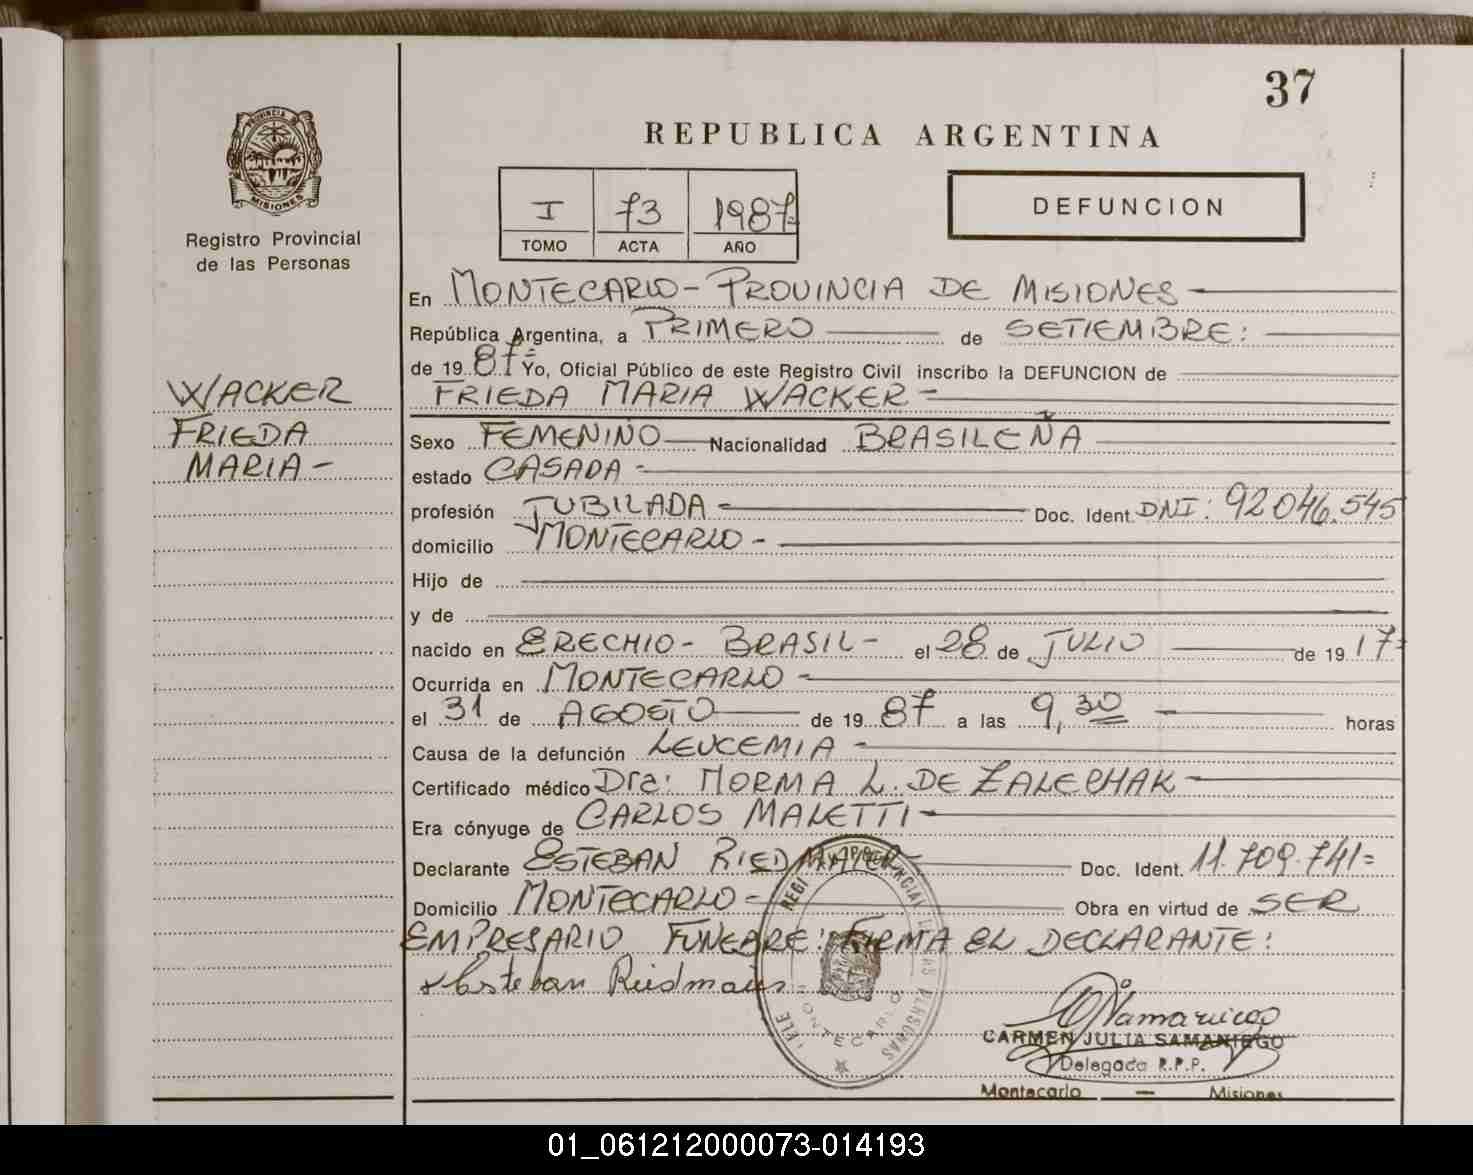 37
REPUBLICA ARGENTINA
PROVINCIA DE
MISIONES
Registro Provincial
de las Personas
I 73 1987=
TOMO ACTA AÑO
DEFUNCION
WACKER
FRIEDA
MARIA -
En MONTECARLO - PROVINCIA DE MISIONES
República Argentina, a PRIMERO de SETIEMBRE:
de 19 87= Yo, Oficial Público de este Registro Civil inscribo la DEFUNCION de
FRIEDA MARIA WACKER -
Sexo FEMENINO Nacionalidad BRASILEÑA
estado CASADA -
profesión JUBILADA - Doc. Ident. DNI: 92046.545
domicilio MONTECARLO -
Hijo de
y de
nacido en ERECHIO - BRASIL - el 28 de JULIO de 19 17=
Ocurrida en MONTECARLO -
el 31 de AGOSTO de 19 87 a las 9,30 horas
Causa de la defunción LEUCEMIA -
Certificado médico Dra: NORMA L. DE ZALECHAK -
Era cónyuge de CARLOS MALETTI -
Declarante ESTEBAN RIEDMAIER - Doc. Ident. 11.709.741=
Domicilio MONTECARLO - Obra en virtud de SER
EMPRESARIO FUNEBRE: FIRMA EL DECLARANTE:
Esteban Riedmaier
MONTECARLO
CARMEN JULIA SAMANIEGO
Delegada R.P.P.
Montecarlo - Misiones
01_061212000073-014193